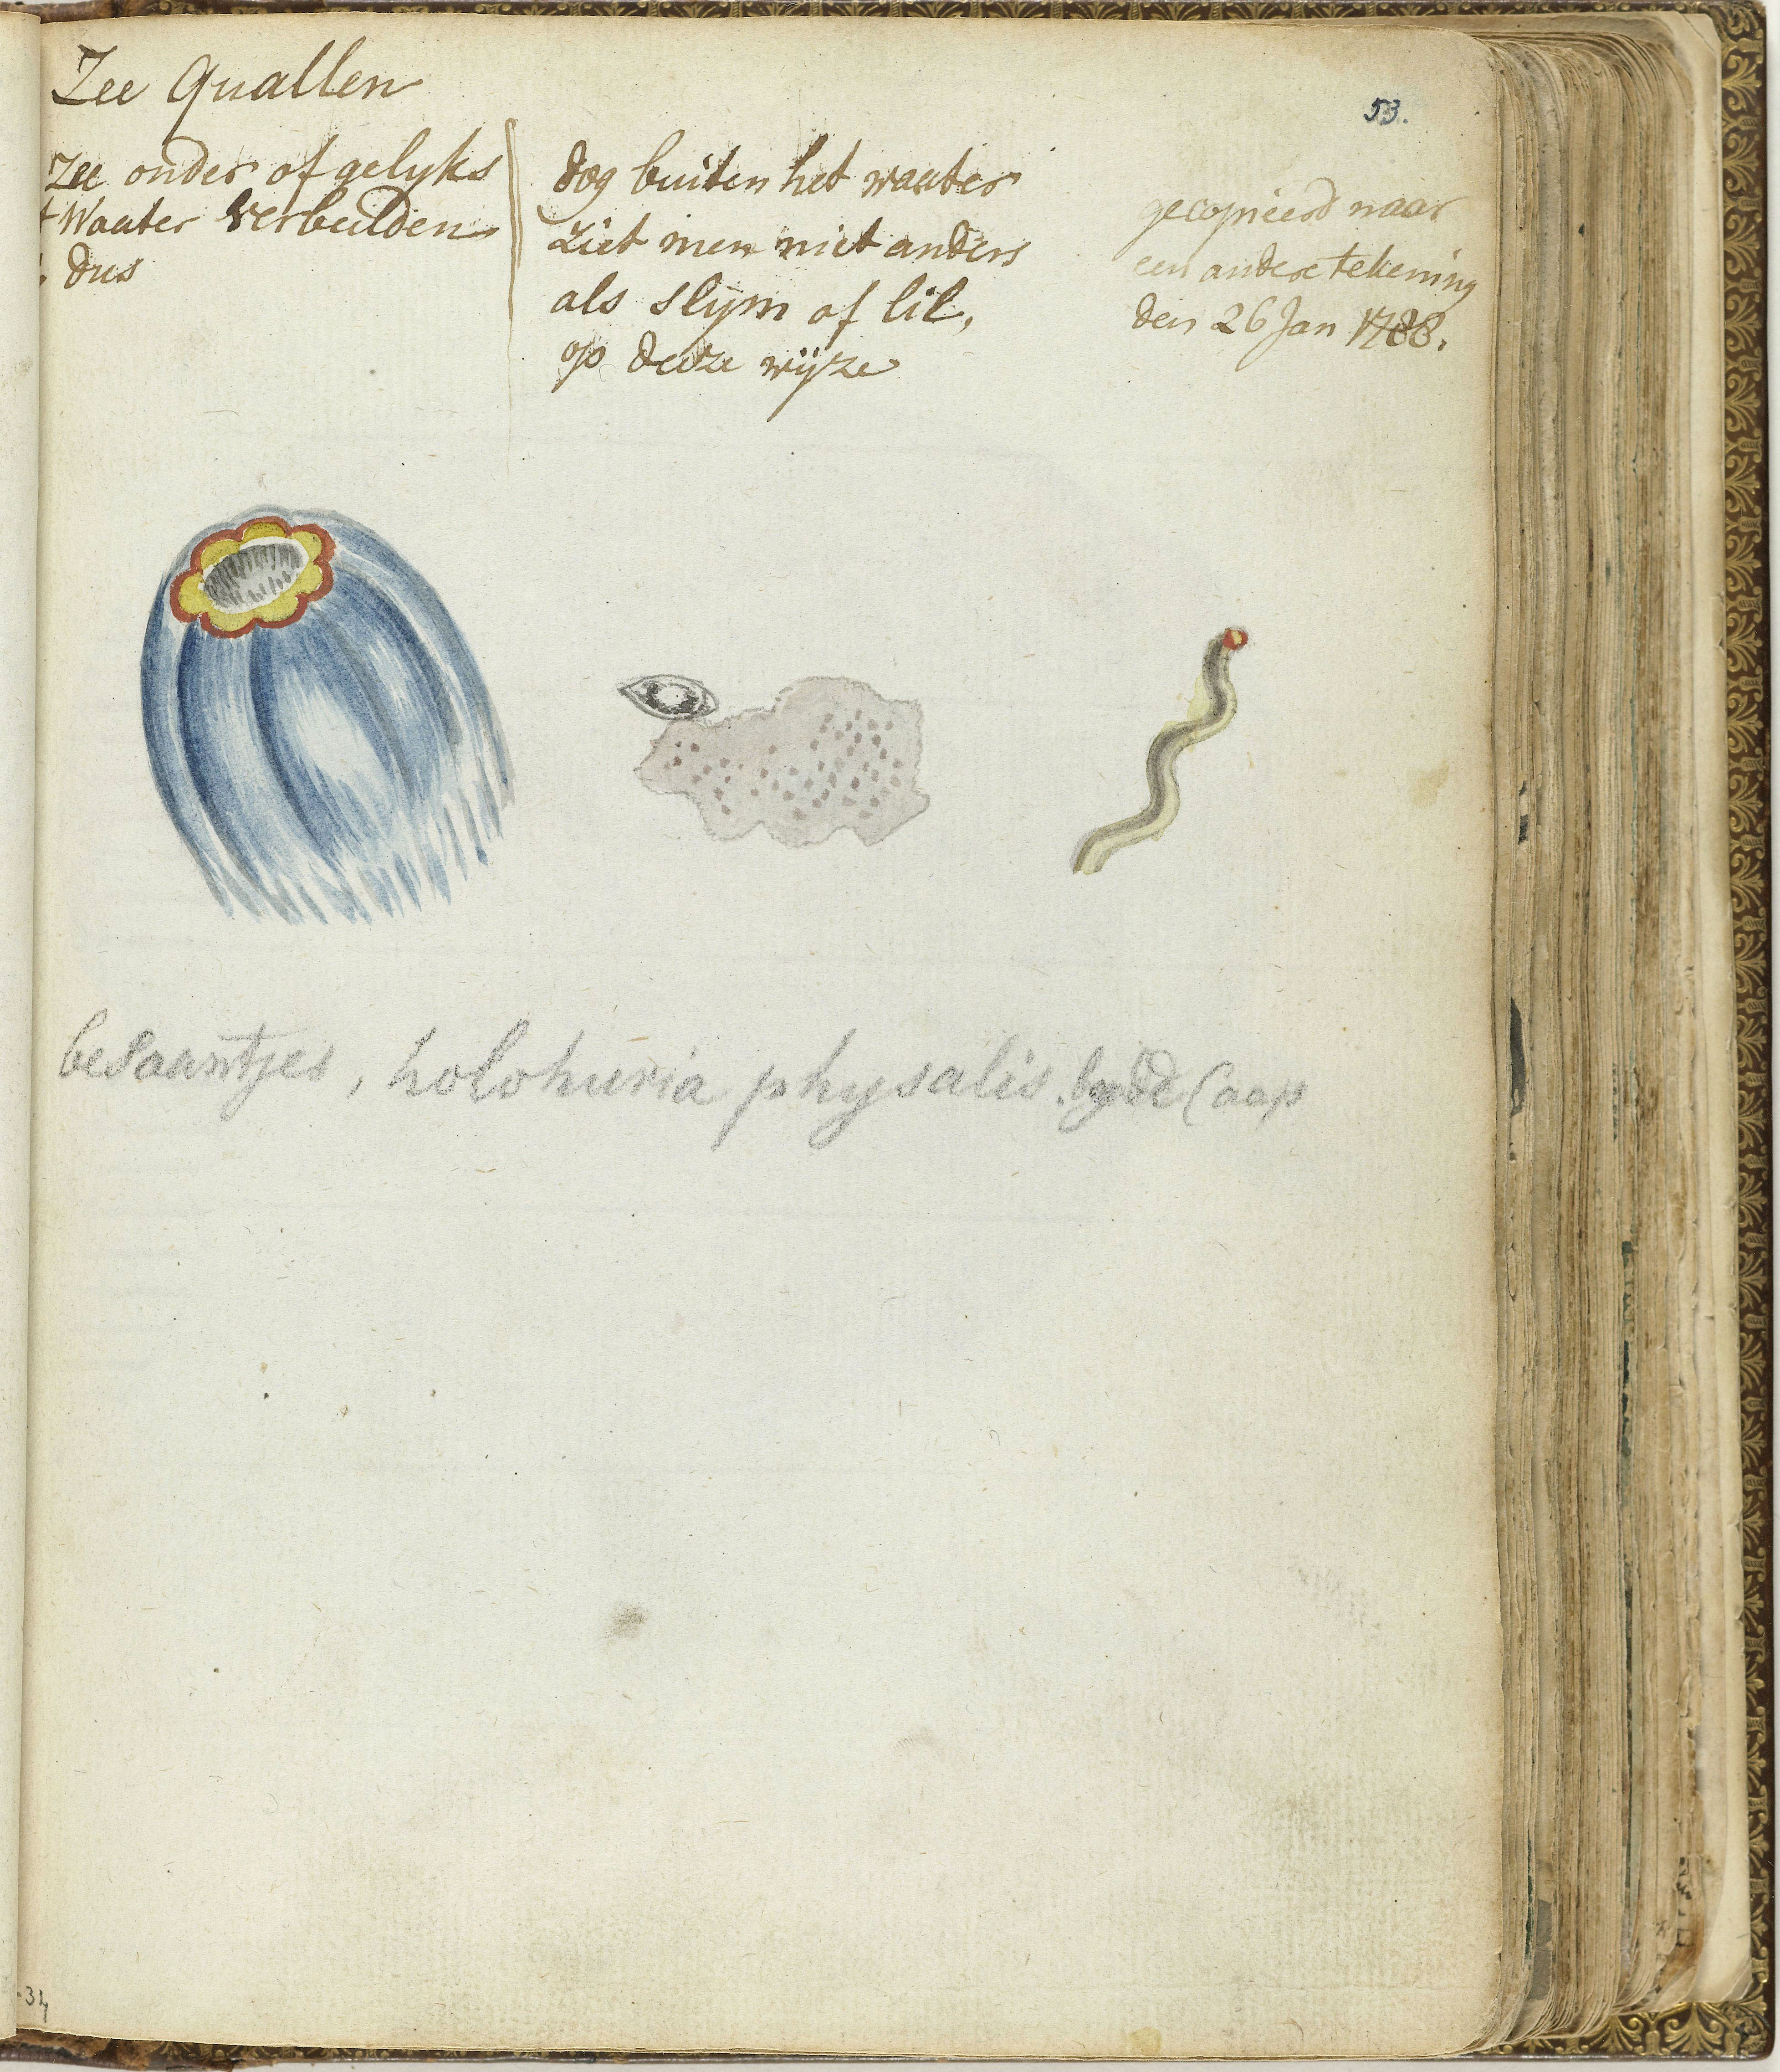 Zee Quallen
53.
Zee onder of gelyks
t Waater verbeelden
dus
dog buiten het waater
ziet men niet anders
als slym of lil,
op deeze wijze
gecopieerd naar
een andere tekening
den 26 Jan 1788.
besaantjes, holohuria physalis. by de Caap